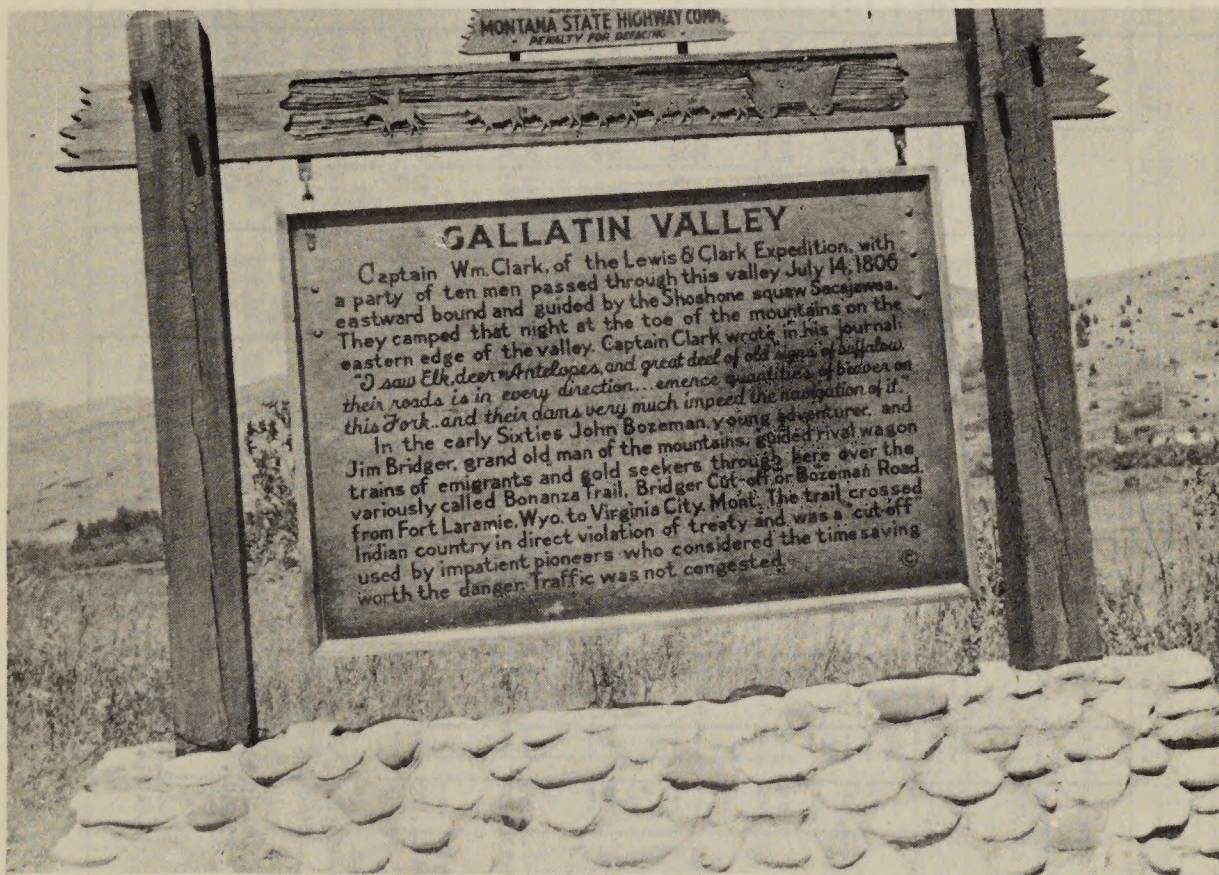 MONTANA STATE HIGHWAY COMM.
PENALTY FOR DEFACING
GALLATIN VALLEY
Captain Wm. Clark, of the Lewis & Clark Expedition, with
a party of ten men passed through this valley July 14, 1806
eastward bound and guided by the Shoshone squaw Sacajawea.
They camped that night at the toe of the mountains on the
eastern edge of the valley. Captain Clark wrote in his journal:
"I saw Elk, deer & Antelopes, and great deel of old signs of buffalow.
their roads is in every direction... emence quantities of beaver on
this Fork... and their dams very much impeed the navigation of it."
In the early Sixties John Bozeman, young adventurer, and
Jim Bridger, grand old man of the mountains, guided rival wagon
trains of emigrants and gold seekers through here over the
variously called Bonanza Trail, Bridger Cut-off or Bozeman Road,
from Fort Laramie, Wyo. to Virginia City, Mont. The trail crossed
Indian country in direct violation of treaty and was a "cut off"
used by impatient pioneers who considered the time saving
worth the danger. Traffic was not congested.
©